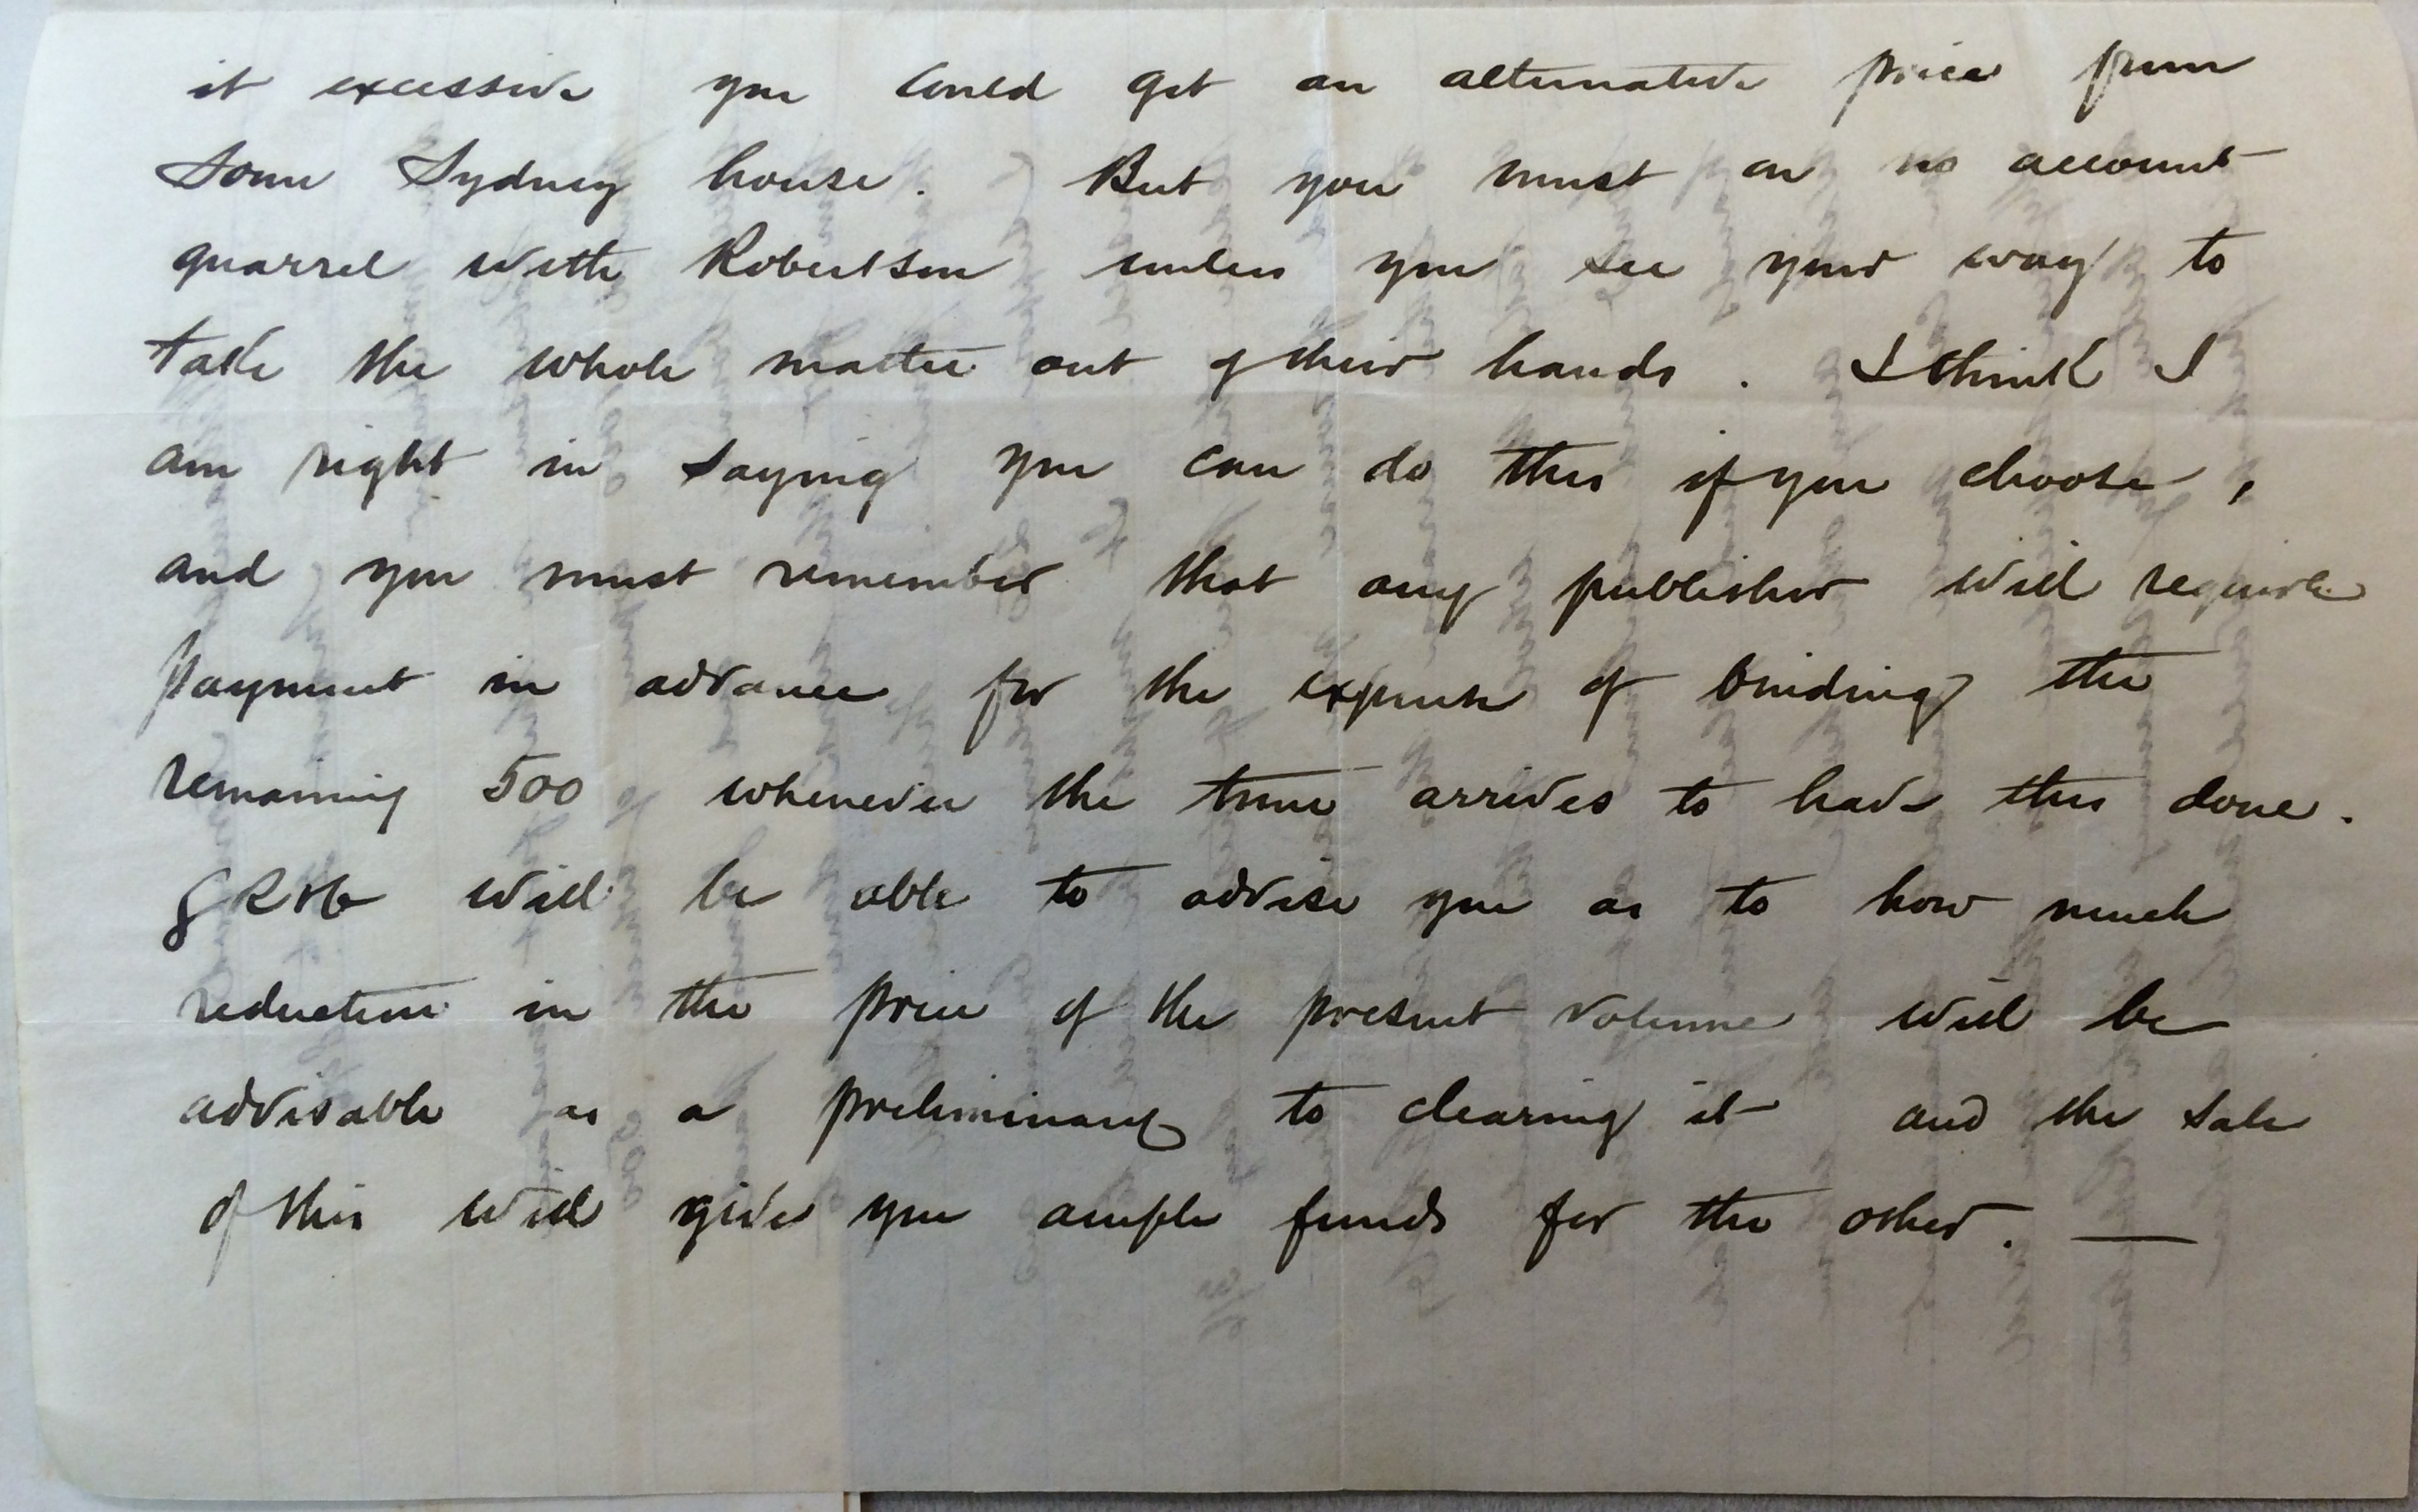 it excessive you could get an alternative price from
some Sydney house. But you must on no account
quarrel with Robertson unless you see your way to
take the whole matter out of their hands. I think I
am right in saying you can do this if you choose,
and you must remember that any publisher will require
payment in advance for the expense of binding the
remaining 500 whenever the time arrives to have this done.
will be able to advise you as to how much
reduction in the price of the present volume will be
advisable as a preliminary to clearing it and the sale
of this will give you ample funds for the other. —